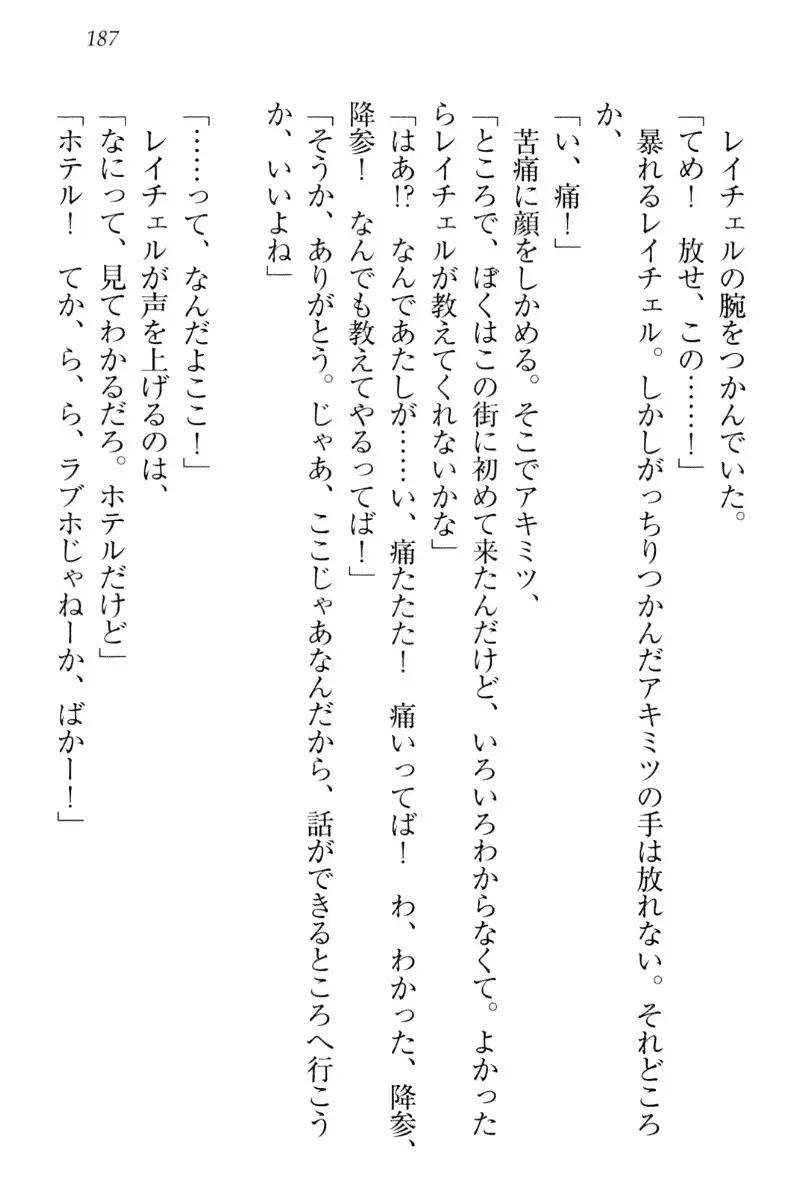 187
レイチェルの腕をつかんでいた。
「てめ!　放せ、この……!」
暴れるレイチェル。しかしがっちりつかんだアキミツの手は放れない。それどころ
か、
「い、痛!」
苦痛に顔をしかめる。そこでアキミツ、
「ところで、ぼくはこの街に初めて来たんだけど、いろいろわからなくて。よかった
らレイチェルが教えてくれないかな」
「はあ!?　なんであたしが……い、痛たたた!　痛いってば!　わ、わかった、降参、
降参!　なんでも教えてやるってば!」
「そうか、ありがとう。じゃあ、ここじゃあなんだから、話ができるところへ行こう
か、いいよね」
「……って、なんだよここ!」
レイチェルが声を上げるのは、
「なにって、見てわかるだろ。ホテルだけど」
「ホテル!　てか、ら、ら、ラブホじゃねーか、ばかー!」